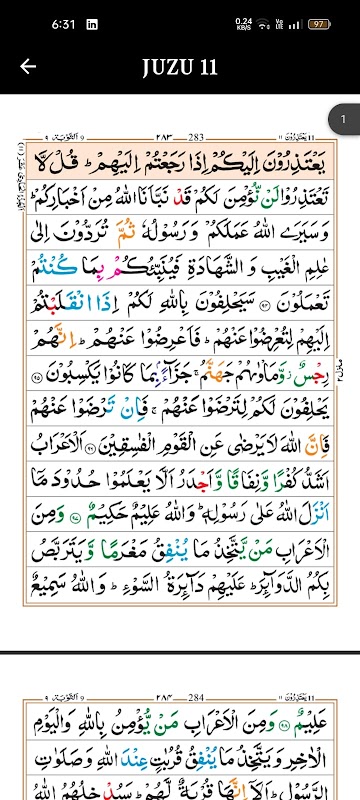 6:31 in 0.24 KB/S Vo LTE 97
JUZU 11
1
یعتذرون ۱۱ 283 ۲۸۳ التوبة ۹
يَعْتَذِرُوْنَ اِلَيْكُمْ اِذَا رَجَعْتُمْ اِلَيْهِمْ ؕ قُلْ لَّا
تَعْتَذِرُوْا لَنْ نُّؤْمِنَ لَكُمْ قَدْ نَبَّاَنَا اللّٰهُ مِنْ اَخْبَارِكُمْ ؕ
وَسَيَرَى اللّٰهُ عَمَلَكُمْ وَرَسُوْلُهٗ ثُمَّ تُرَدُّوْنَ اِلٰى
عٰلِمِ الْغَيْبِ وَالشَّهَادَةِ فَيُنَبِّئُكُمْ بِمَا كُنْتُمْ
تَعْمَلُوْنَ ۹۴ سَيَحْلِفُوْنَ بِاللّٰهِ لَكُمْ اِذَا انْقَلَبْتُمْ
اِلَيْهِمْ لِتُعْرِضُوْا عَنْهُمْ ؕ فَاَعْرِضُوْا عَنْهُمْ ؕ اِنَّهُمْ
رِجْسٌ ؗ وَّمَاْوٰىهُمْ جَهَنَّمُ ۚ جَزَآءًۢ بِمَا كَانُوْا يَكْسِبُوْنَ ۹۵
يَحْلِفُوْنَ لَكُمْ لِتَرْضَوْا عَنْهُمْ ۚ فَاِنْ تَرْضَوْا عَنْهُمْ
فَاِنَّ اللّٰهَ لَا يَرْضٰى عَنِ الْقَوْمِ الْفٰسِقِيْنَ ۹۶ اَلْاَعْرَابُ
اَشَدُّ كُفْرًا وَّنِفَاقًا وَّاَجْدَرُ اَلَّا يَعْلَمُوْا حُدُوْدَ مَاۤ
اَنْزَلَ اللّٰهُ عَلٰى رَسُوْلِهٖ ؕ وَاللّٰهُ عَلِيْمٌ حَكِيْمٌ ۹۷ وَمِنَ
الْاَعْرَابِ مَنْ يَّتَّخِذُ مَا يُنْفِقُ مَغْرَمًا وَّيَتَرَبَّصُ
بِكُمُ الدَّوَآئِرَ ؕ عَلَيْهِمْ دَآئِرَةُ السَّوْءِ ؕ وَاللّٰهُ سَمِيْعٌ
یعتذرون ۱۱ 284 ۲۸۴ التوبة ۹
عَلِيْمٌ ۹۸ وَمِنَ الْاَعْرَابِ مَنْ يُّؤْمِنُ بِاللّٰهِ وَالْيَوْمِ
الْاٰخِرِ وَيَتَّخِذُ مَا يُنْفِقُ قُرُبٰتٍ عِنْدَ اللّٰهِ وَصَلَوٰتِ
الرَّسُوْلِ ؕ اَلَاۤ اِنَّهَا قُرْبَةٌ لَّهُمْ ؕ سَيُدْخِلُهُمُ اللّٰهُ